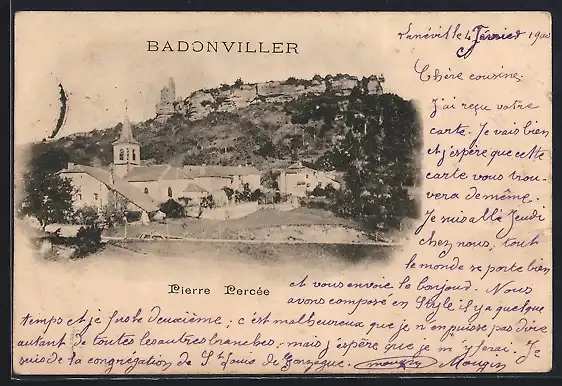 BADONVILLER
Lunéville 4 Février 1900
Chère cousine,
J'ai reçu votre
carte. Je vais bien
et j'espère que cette
carte vous trou-
vera de même.
Je suis allé Jeudi
chez nous, tout
le monde se porte bien
et vous envoie le bonjour. Nous
avons composé en Style il y a quelque
temps et je fus le deuxième ; c'est malheureux que je n'en puisse pas dire
autant de toutes les autres branches, mais j'espère que je m'y ferai. Je
suis de la congrégation de St Louis de Gonzague. Mougin
Pierre Percée